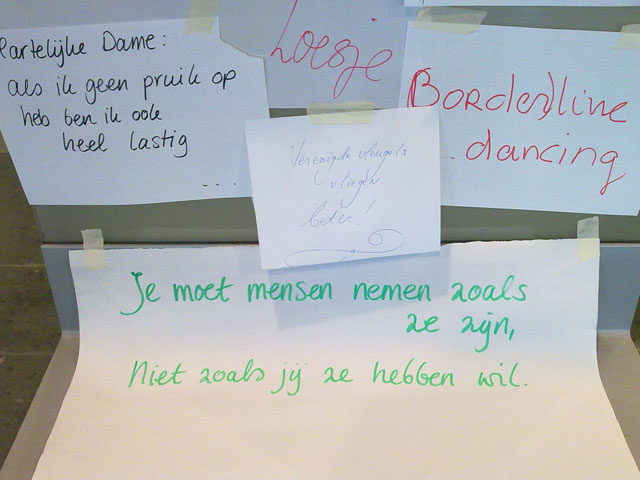 Hartelijke Dame:
als ik geen pruik op
heb ben ik ook
heel lastig
...
Loesje
(Border)line
dancing
Verenigde vleugels
vliegen
beter!
Je moet mensen nemen zoals
ze zijn,
Niet zoals jij ze hebben wil.